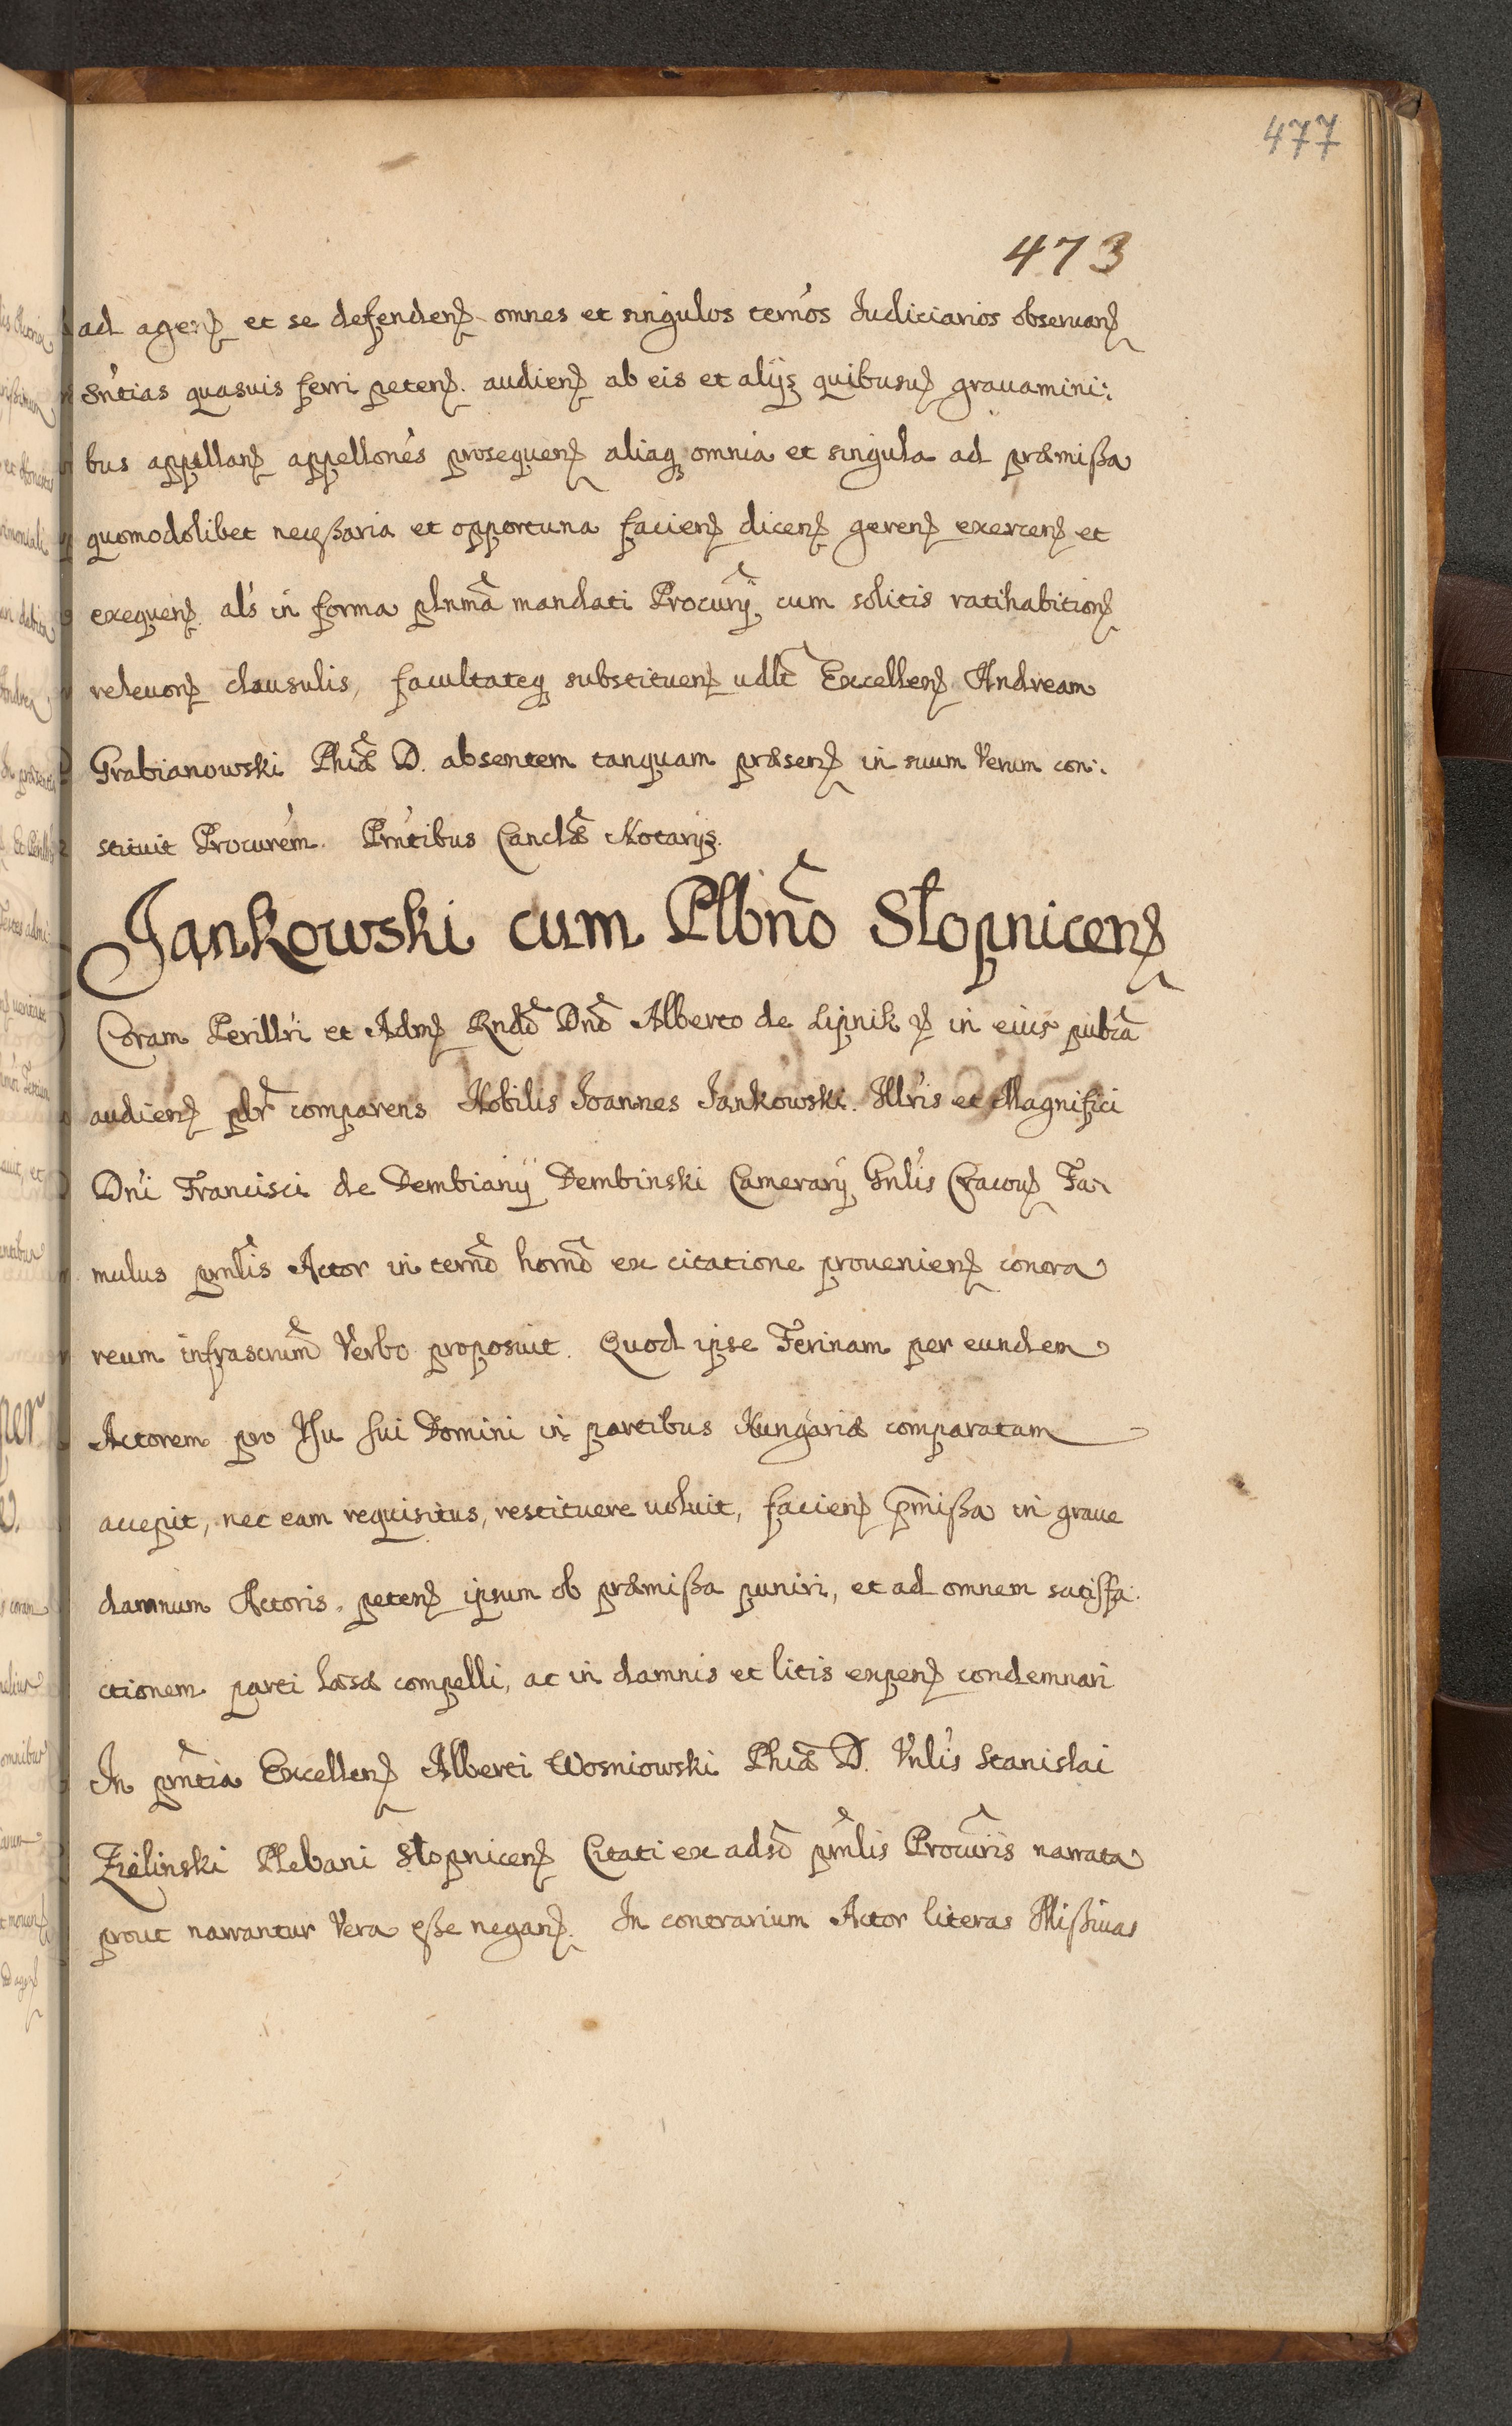 477
473
ad agenꝫ et se defendenꝫ omnes et singulos termós Judiciarios obseruanꝫ
Sńtias quasuis ferri petenꝫ. audienꝫ ab eis et alÿs quibusuꝫ grauamini:
bus appellanꝫ appellonés prosequenꝫ aliaqꝫ omnia et singula ad præmißa
quomodolibet neceßaria et opportuna facienꝫ dicenꝫ gerenꝫ exercenꝫ et
exequenꝫ. als in forma plnma mandati Procurÿ cum solitis ratihabitionꝫ
releuonꝫ clausulis, facultateqꝫ substituenꝫ udlt Excellenꝫ Andream
Grabianowski Phiæ D. absentem tanquam præsenꝫ in suum Verum con:
stituit Procurém. Prńtibus Canclæ Notarÿs.
Jankowski cum Plbno Stopnicenꝫ
Coram Perillri et Admꝫ Rndo Dno Alberto de Lipnik ꝫ in eius publca
audienꝫ pblr comparens Nobilis Joannes Jankowski. Illris et Magnifici
Dńi Francisci de Dembianÿ Dembinski Camerarÿ Gnlis Cracouꝫ Fa-
mulus prnlis Actor in termo horno ex citatione prouenienꝫ contra
reum infrascrum Verbo proposuit. Quod ipse Ferinam per eundem
Actorem pro Vsu sui Domini in partibus Hungariæ comparatam
accepit, nec eam requisitus, restituere uoluit, facienꝫ pmißa in graue
damnum Actoris. petenꝫ ipsum ob præmißa puniri, et ad omnem satisfa:
ctionem parti læsæ compelli, ac in damnis et litis expenꝫ condemnari
In prntia Excellenꝫ Alberti Wosniowski Phiæ D. Vnlis Stanislai
Zielinski Plebani Stopnicenꝫ Citati ex adso prnlis Procuris narrata
prout narrantur Vera eße neganꝫ. In contrarium Actor literas Mißiuas